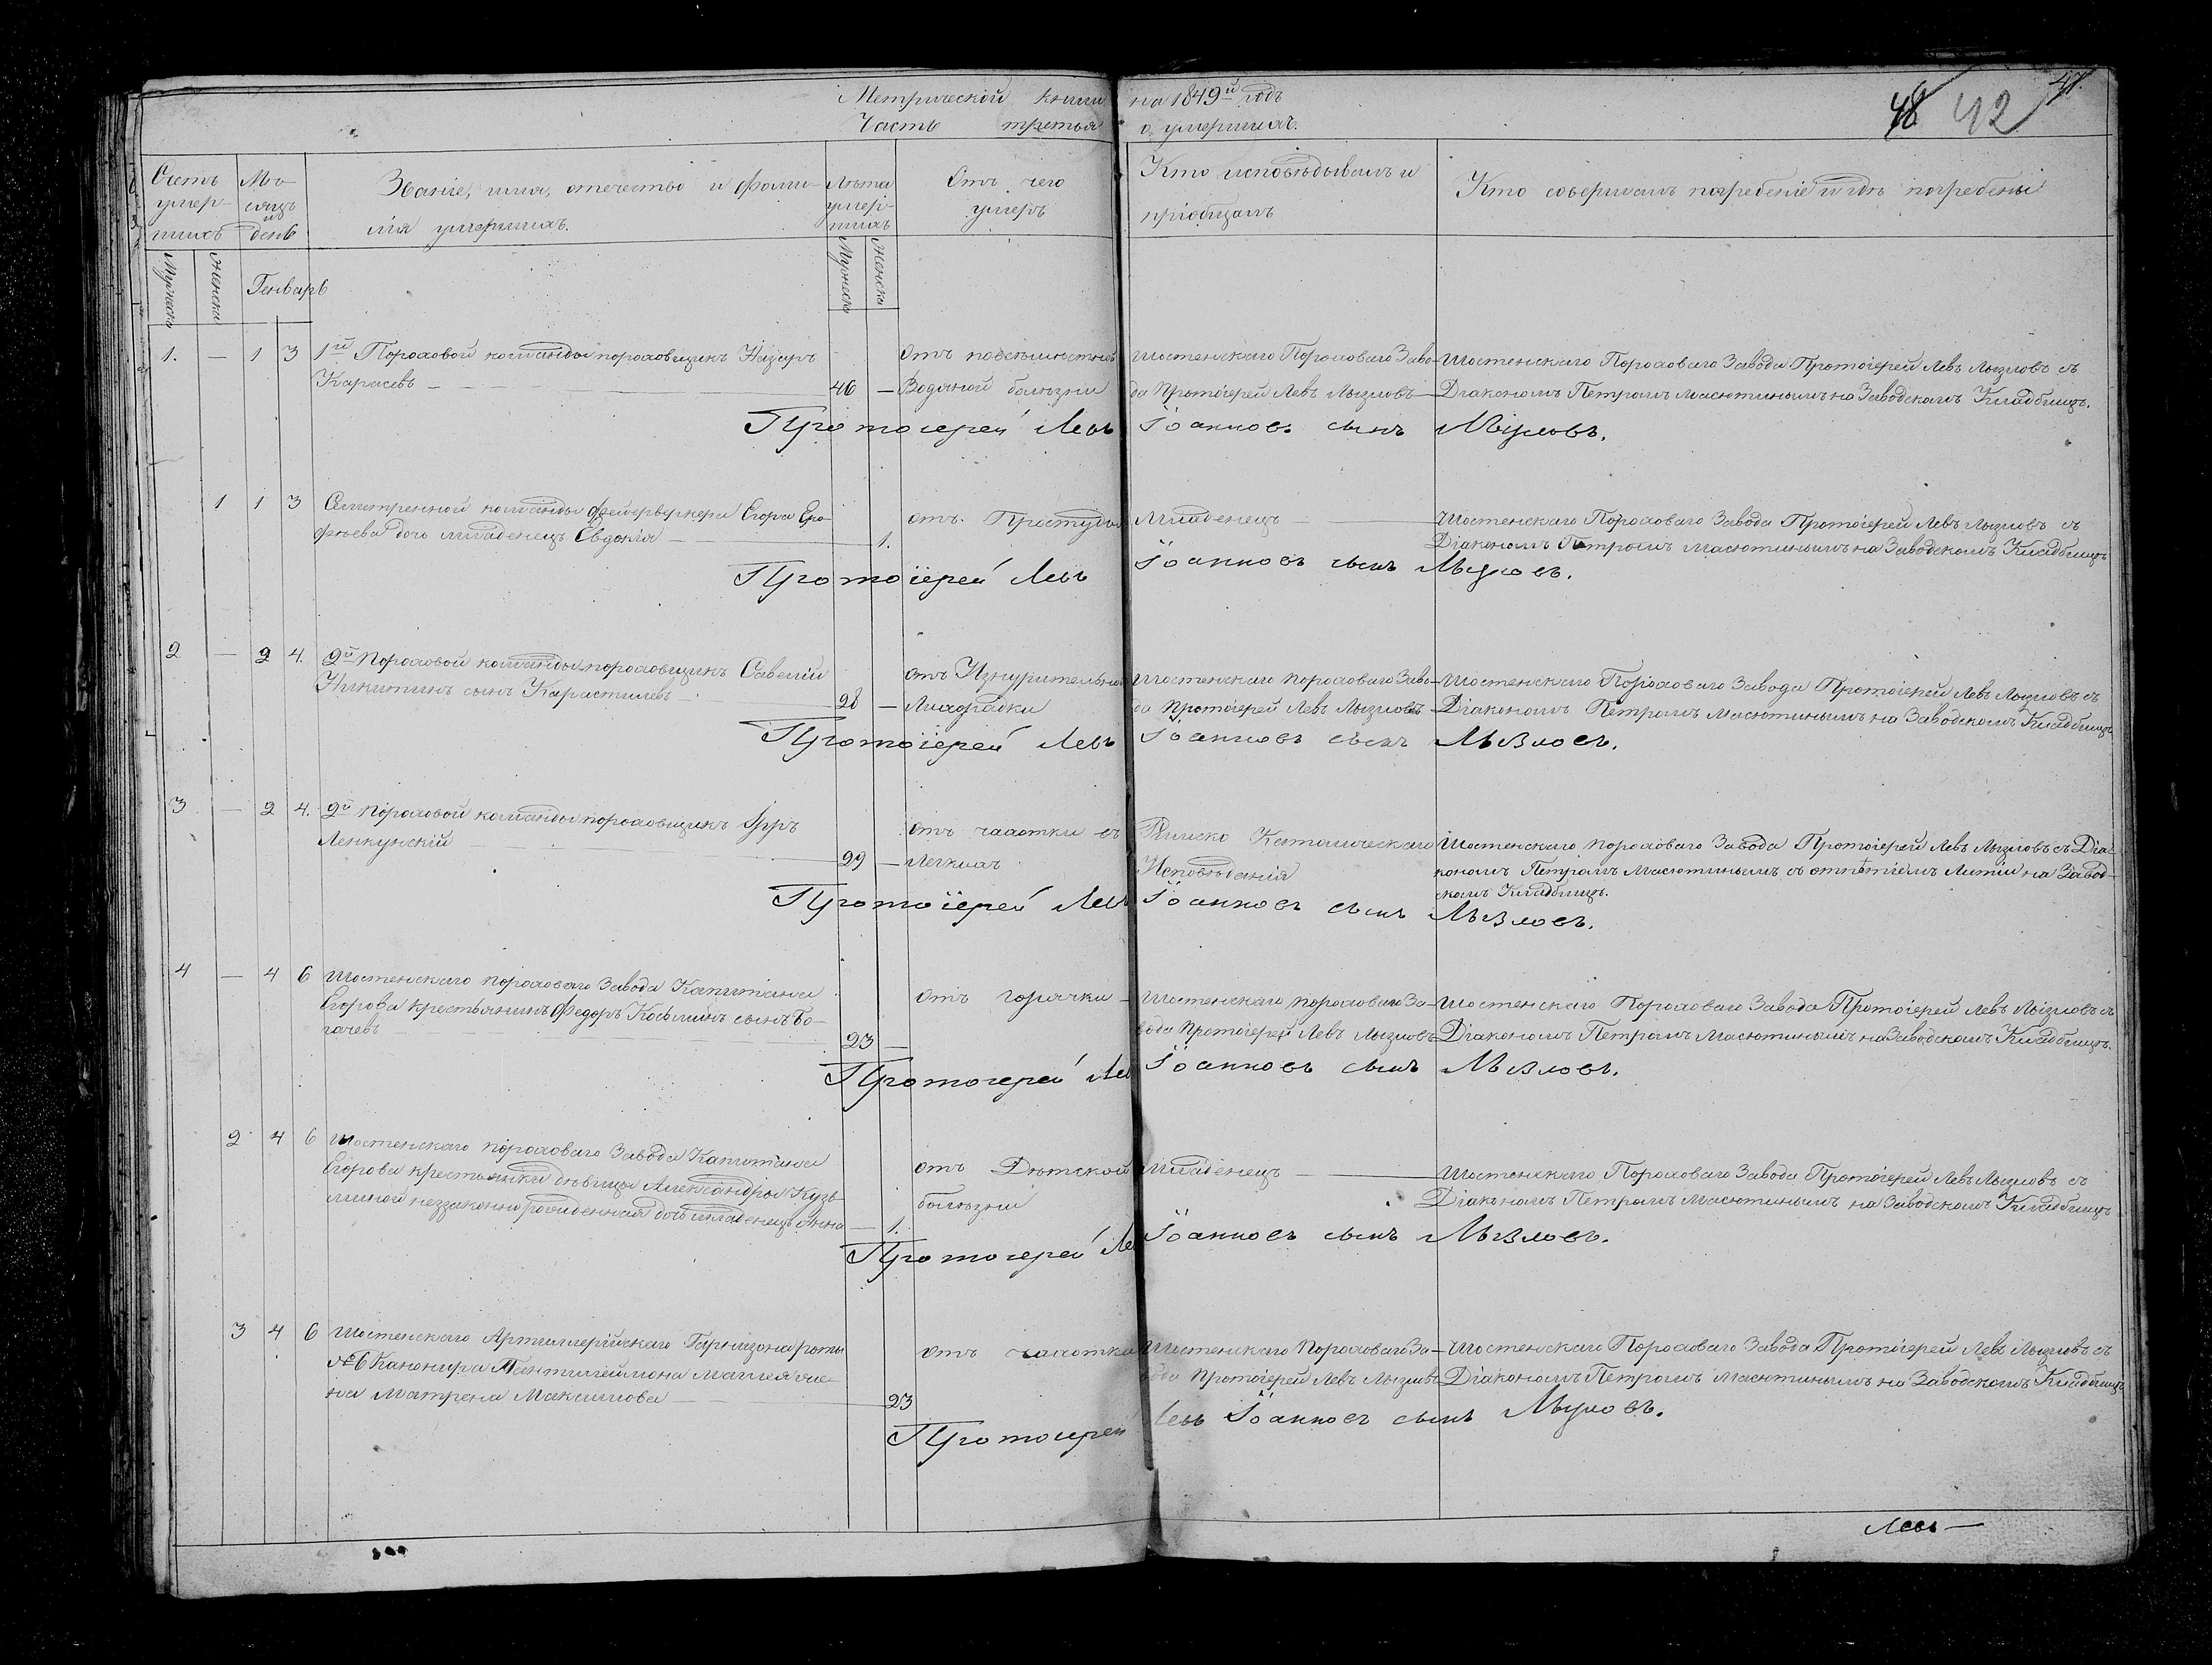 Метрической книги на 1849й годъ
Часть третья о умершихъ.
48 42 47.
Счетъ умер-шихъ
Мѣ-сяцъ и день
Званіе, имя, отечество и фами-
лія умершихъ.
Лѣта умер-шихъ
Отъ чего умеръ
Кто исповѣдывалъ и
пріобщалъ
Кто совершалъ погребеніе и гдѣ погребены
Мужеска Женска Генварь Мужеска Женска
1. — 1 3 1й Пороховой команды пороховщикъ Назаръ
Карасевъ — 46 —
Водяной болѣзни
Шостенскаго Пороховаго Заво-
да Протоіерей Левъ Лызловъ
Шостенскаго Пороховаго Завода Протоіерей Левъ Лызловъ съ
Діакономъ Петромъ Масютинымъ на Заводскомъ Кладбищѣ.
Протоіерей Левъ Іоанновъ сынъ Лызловъ.
1 1 3 Селитренной команды фейерверкера Егора Еро-
фѣева дочь младенецъ Евдокія — 1.
отъ Простуды
Младенецъ
Шостенскаго Пороховаго Завода Протоіерей Левъ Лызловъ съ
Діакономъ Петромъ Масютинымъ на Заводскомъ Кладбищѣ
Протоіерей Левъ Іоанновъ сынъ Лызловъ.
2 — 2 4. 2й Пороховой команды пороховщикъ Савелій
Никитинъ сынъ 28 —
отъ Изнурительной
Лихорадки
Шостенскаго Пороховаго Заво-
да Протоіерей Левъ Лызловъ
Шостенскаго Пороховаго Завода Протоіерей Левъ Лызловъ съ
Діакономъ Петромъ Масютинымъ на Заводскомъ Кладбищѣ
Протоіерей Левъ Іоанновъ сынъ Лызловъ.
3 — 2 4. 2й Пороховой команды пороховщикъ
Ленкунскій 29 —
отъ чахотки въ
Легкихъ
Римско Католическаго
Исповѣданія
Шостенскаго Пороховаго Завода Протоіерей Левъ Лызловъ съ Діа-
кономъ Петромъ Масютинымъ съ отпѣтіемъ Литіи на Завод-
скомъ Кладбищѣ.
Протоіерей Левъ Іоанновъ сынъ Лызловъ.
4 — 4 6 Шостенскаго Пороховаго Завода Капитана
Егорова крестьянинъ Федоръ Косьминъ сынъ Бо-
гачевъ 23 —
отъ горячки —
Шостенскаго Пороховаго За-
вода Протоіерей Левъ Лызловъ
Шостенскаго Пороховаго Завода Протоіерей Левъ Лызловъ съ
Діакономъ Петромъ Масютинымъ на Заводскомъ Кладбищѣ.
Протоіерей Левъ Іоанновъ сынъ Лызловъ.
2 4 6 Шостенскаго Пороховаго Завода Капитана
Егорова крестьянки дѣвицы Александры Кузь-
миной неззаконно рожденная дочь младенецъ Анна — 1.
отъ Дѣтской
болѣзни
Младенецъ
Шостенскаго Пороховаго Завода Протоіерей Левъ Лызловъ съ
Діакономъ Петромъ Масютинымъ на Заводскомъ Кладбищѣ
Протоіерей Левъ Іоанновъ сынъ Лызловъ.
3 4 6 Шостенскаго Артиллерійскаго Гарнизона роты
№6 Канонира Пантилеймона же-
на Матрена Максимова 23
отъ чахотки
Шостенскаго Пороховаго За-
вода Протоіерей Левъ Лызловъ
Шостенскаго Пороховаго Завода Протоіерей Левъ Лызловъ съ
Діакономъ Петромъ Масютинымъ на Заводскомъ Кладбищѣ
Протоіерей Левъ Іоанновъ сынъ Лызловъ.
Левъ —